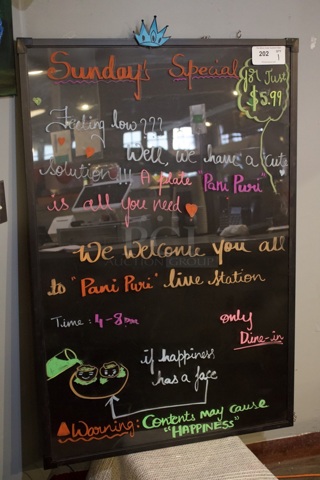 Sunday's Special
for Just
$5.99
202
1
Feeling low???
Well, we have a cute
solution!!! A plate "Pani Puri"
is all you need
We Welcome you all
to "Pani Puri" live station
Time: 4-8pm
only
Dine-in
if happiness
has a face
Warning: Contents may cause
"HAPPINESS"